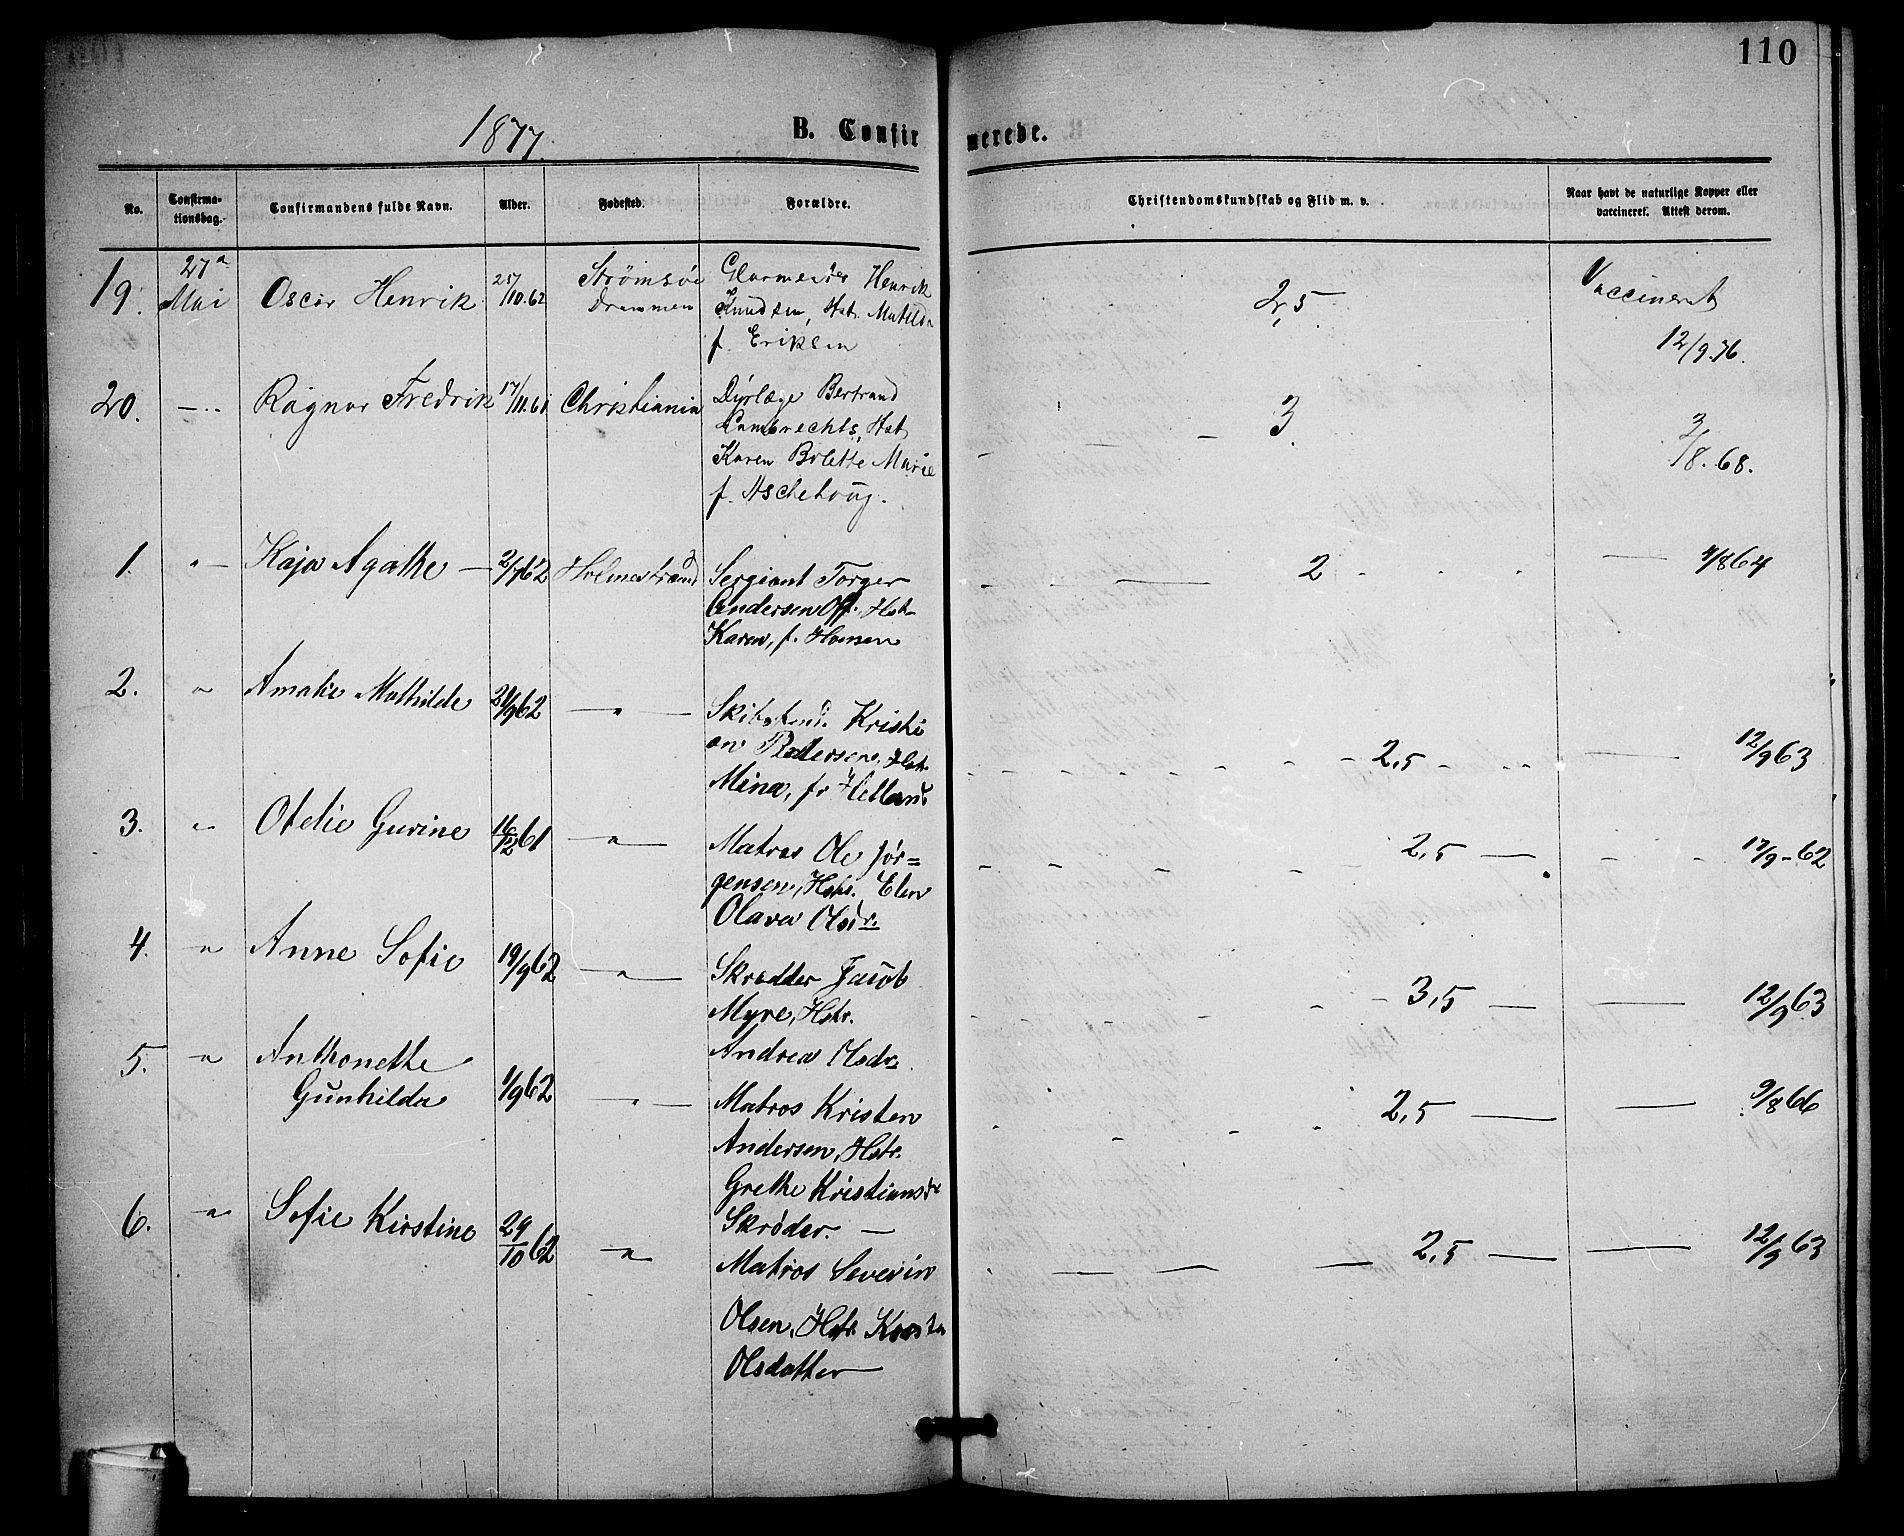 110
1877.
B. Confirmerede.
No.
Confirma-
tionsdag.
Confirmandens fulde Navn.
Alder.
Fødested.
Forældre.
Christendomskundskab og Flid m. v.
Naar havt de naturlige Kopper eller
vaccineret. Attest derom.
19. 27a Mai Oscar Henrik 25/10.62 Strømsøe Drammen 2,5 Vaccineret 12/9.76.
Glarmester Henrik
Knudsen, Hst. Matilda
f. Eriksen
20. — Ragnar Fredrik 17/11.61 Christiania 3 3/8.68.
Dyrlæge Bertrand
Lambrechts, Hst
Karen Bolette Marie
f. Aschehoug.
1. " Kaja Agathe — 2/7 62 Holmestrand 2 — 4/8 64
Sergiant Torger
Andersen Off. Hst.
Karen, f. Hansen
2. " Amalie Mathilde 21/9 62 — " — 2,5 — 12/9 63
Kristi
an Pedersen, Hst.
Mina, f.
3. " Otelie Gurine 16/12 61 — " — 2,5 — 17/9-62
Matros Ole Jør=
gensen, Hstr. Elen
Olava Olsdr.
4. " Anne Sofie 19/9 62 — " — 3,5 — 12/9 63
Skrædder Jacob
Myre, Hstr.
Andrea Olsdr.
5. " Anthonette
Gunhilda 1/9 62 — " — 2,5 — 9/8 66
Matros Kristen
Andersen, Hstr.
Grethe Kristiansdr
Skrøder. —
6. " Sofie Kirstine 29/10 62 " 2,5 — 12/9 63
Matros Severin
Olsen, Hstr.
Olsdatter